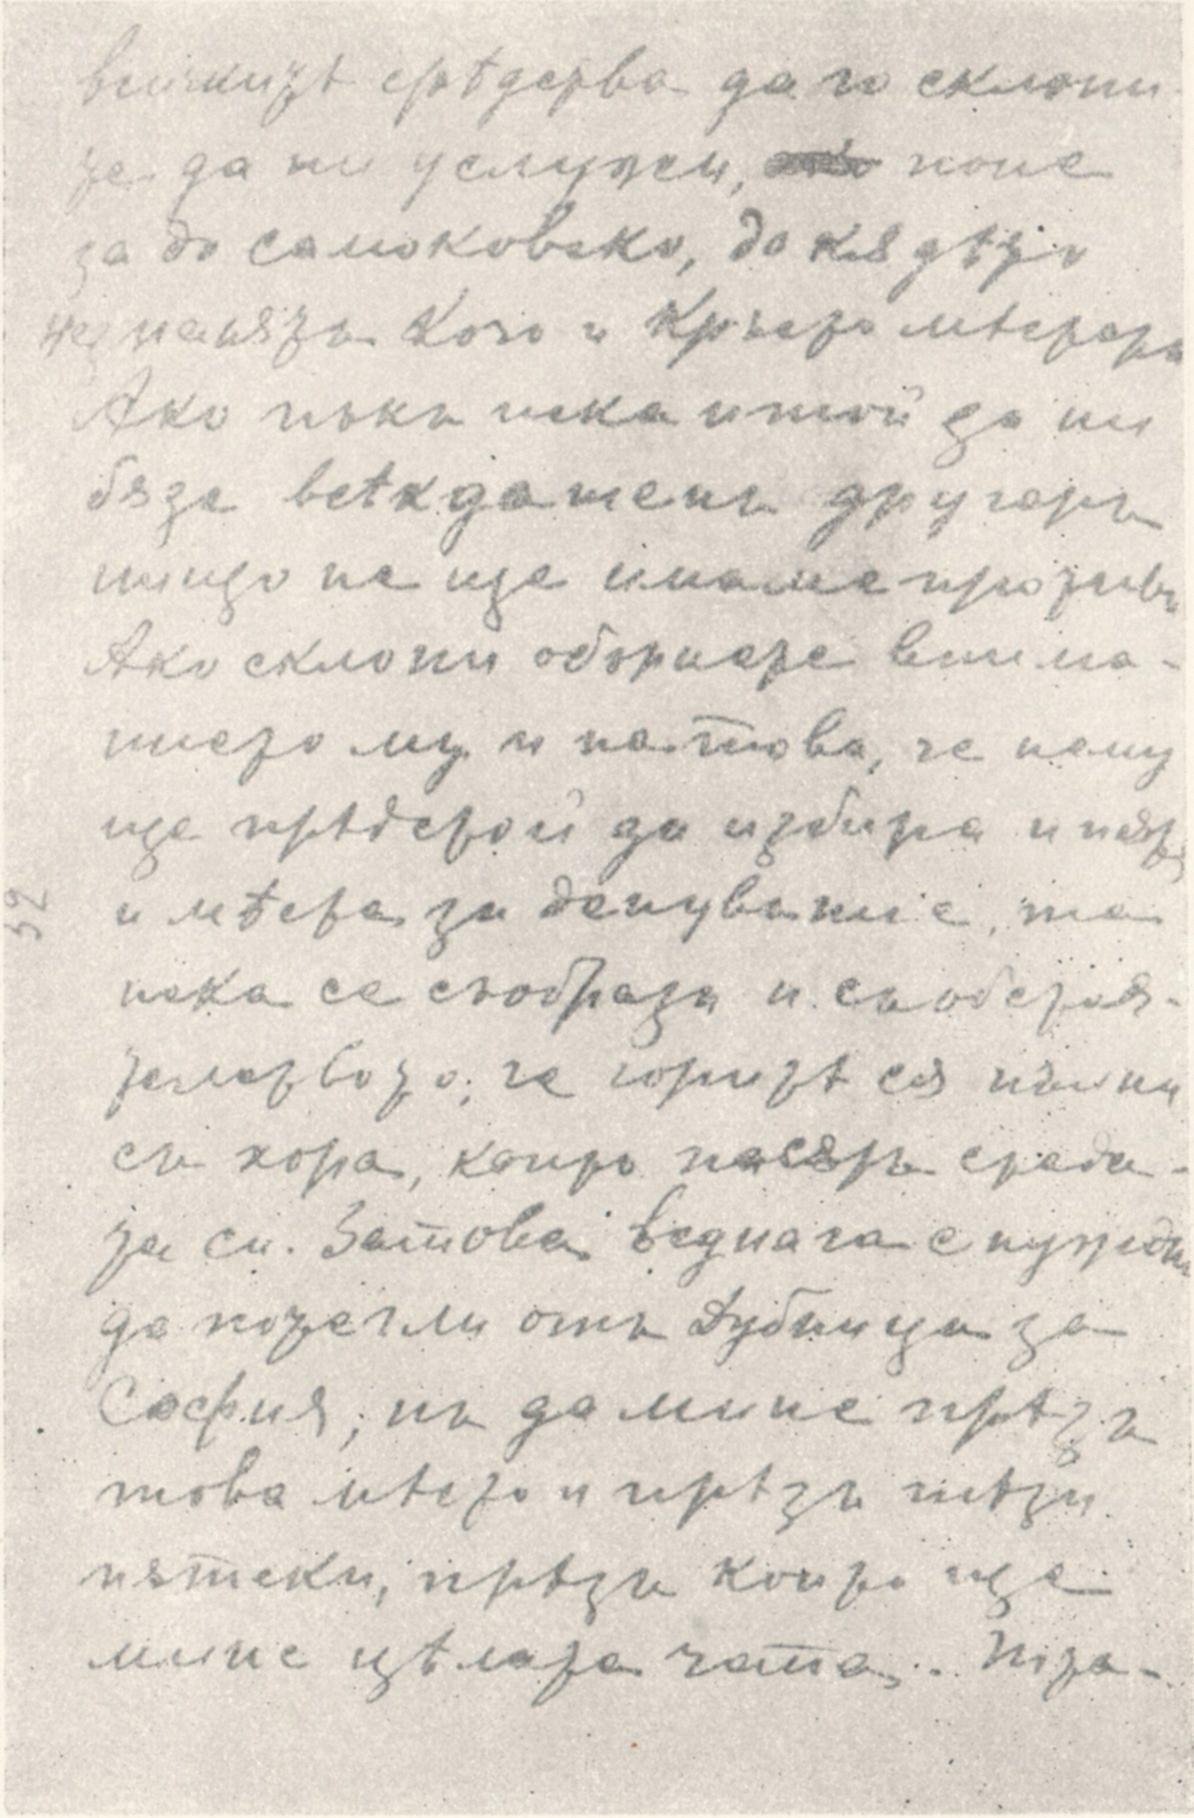 всичкитѣ срѣдства да го склони
те да ни услужи, поне
за до самоковско, до кѫдѣто
познаватъ Кочо и Кръсто мѣстата
Ако пъкъ иска и той да ни
бѫде всѣкдашенъ другарь
нищо не ще имаме противъ
Ако склони обърнете внима-
нието му и на това, че нему
ще прѣдстои да избира и пѫтя
и мѣста за денуванпе, та
нека се съобрази и съ обстоя-
телството, че горитѣ сѫ пълни
съ хора, които пасѫтъ стада-
та си. Затова веднага е нуждно
да потегли отъ Дубница за
София, нъ да мине прѣзъ
това мѣсто и прѣзъ тѣзи
пѫтеки, прѣзъ които ще
мине цѣлата чета. Тога-
32